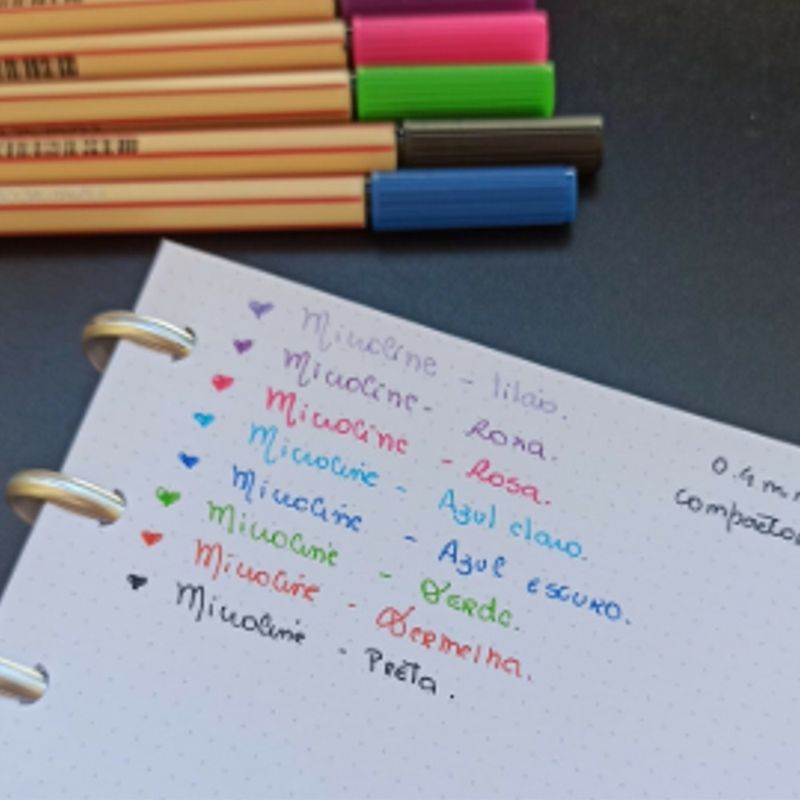 Microline - lilais.
Microline - Roxa.
Microline - Rosa.
Microline - Azul claro.
Microline - Azul escuro.
Microline - Verde.
Microline - Vermelha.
Microline - Preta.
0.4 m